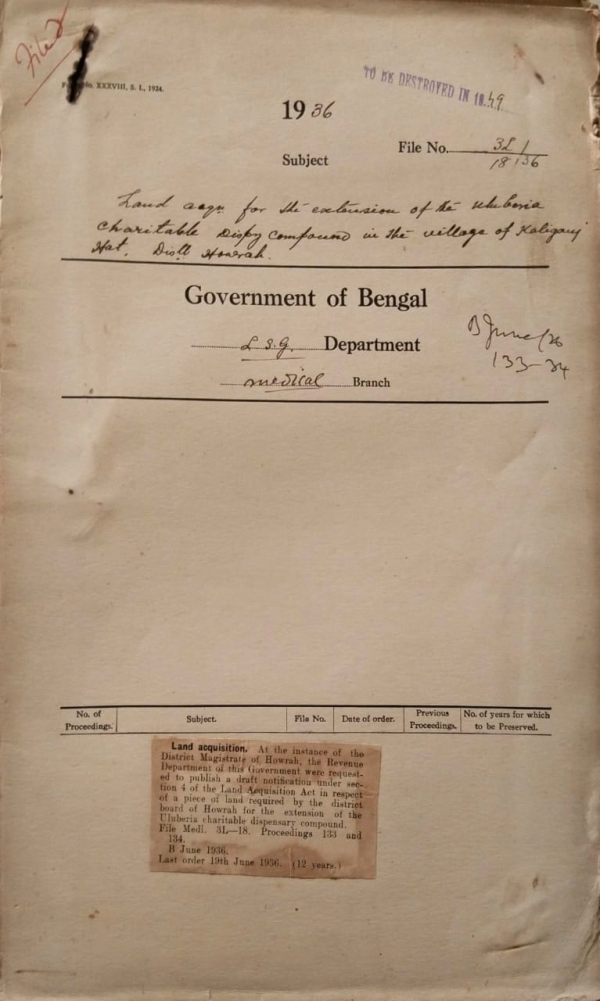 Filed
No. XXXVIII, S. I., 1924.
TO BE DESTROYED IN 1949
1936
File No. 3L 1/18/36
Subject
Land acqn for the extension of the Uluberia
charitable Dispy compound in the village of Kaliganj
Hat, Distt Howrah.
Government of Bengal
L.S.G. Department
medical Branch
B June/36
133-34
No. of Proceedings. Subject. File No. Date of order. Previous Proceedings. No. of years for which to be Preserved.
Land acquisition. At the instance of the
District Magistrate of Howrah, the Revenue
Department of this Government were request-
ed to publish a draft notification under sec-
tion 4 of the Land Acquisition Act in respect
of a piece of land required by the district
board of Howrah for the extension of the
Uluberia charitable dispensary compound.
File Medl. 3L—18. Proceedings 133 and
134.
B June 1936.
Last order 19th June 1936. (12 years.)